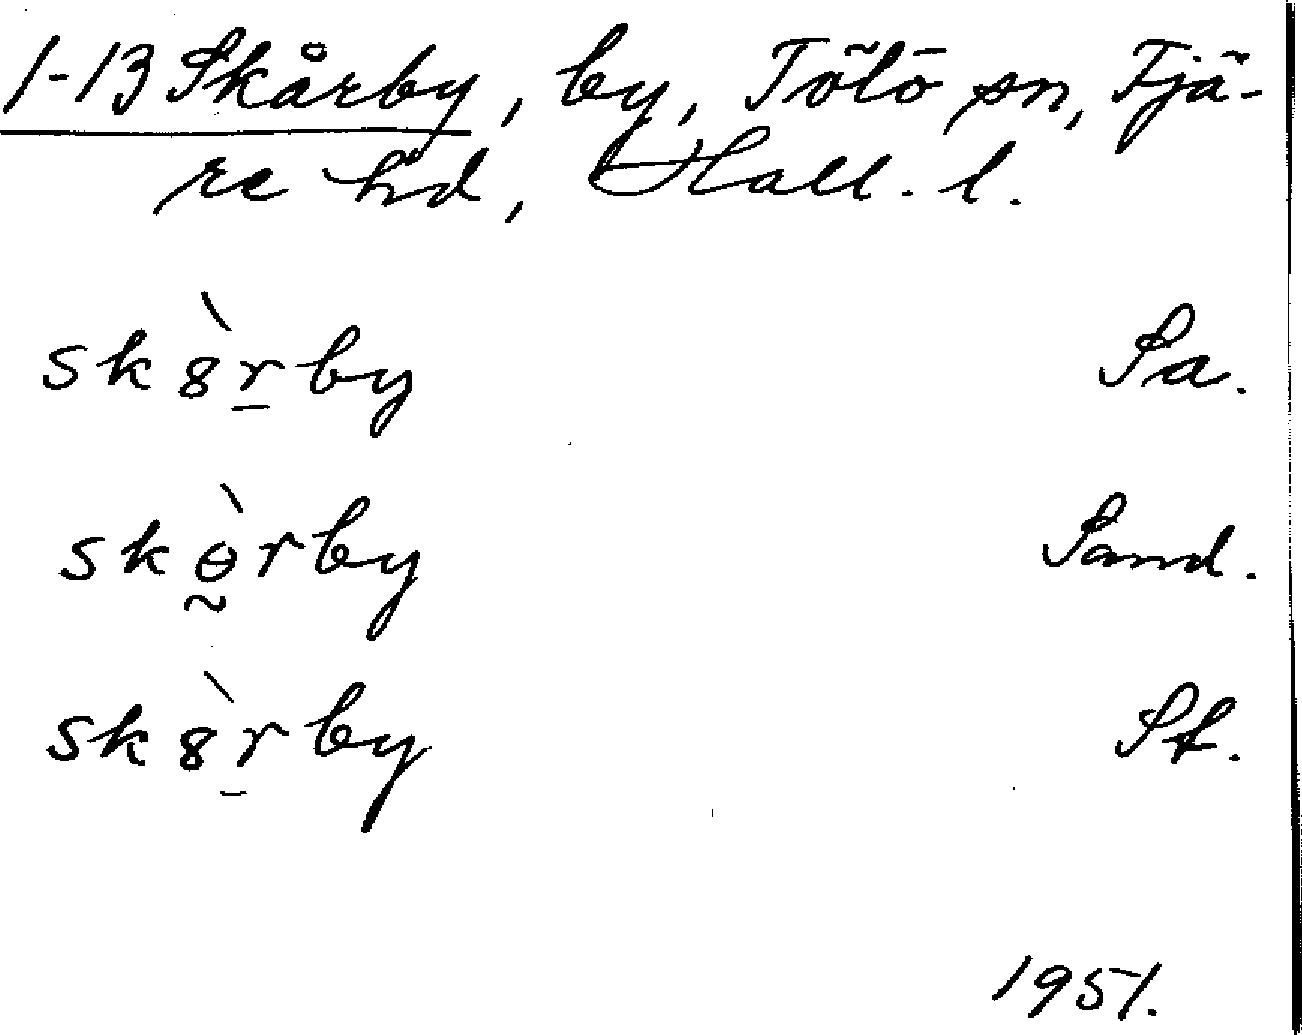 1-13 Skårby, by, Tölö sn, Fjä-
re hd, Hall. l.
sk8̀r̲by Sa.
skɵ̰̀rby Sand.
sk8̀r̲by St.
1951.